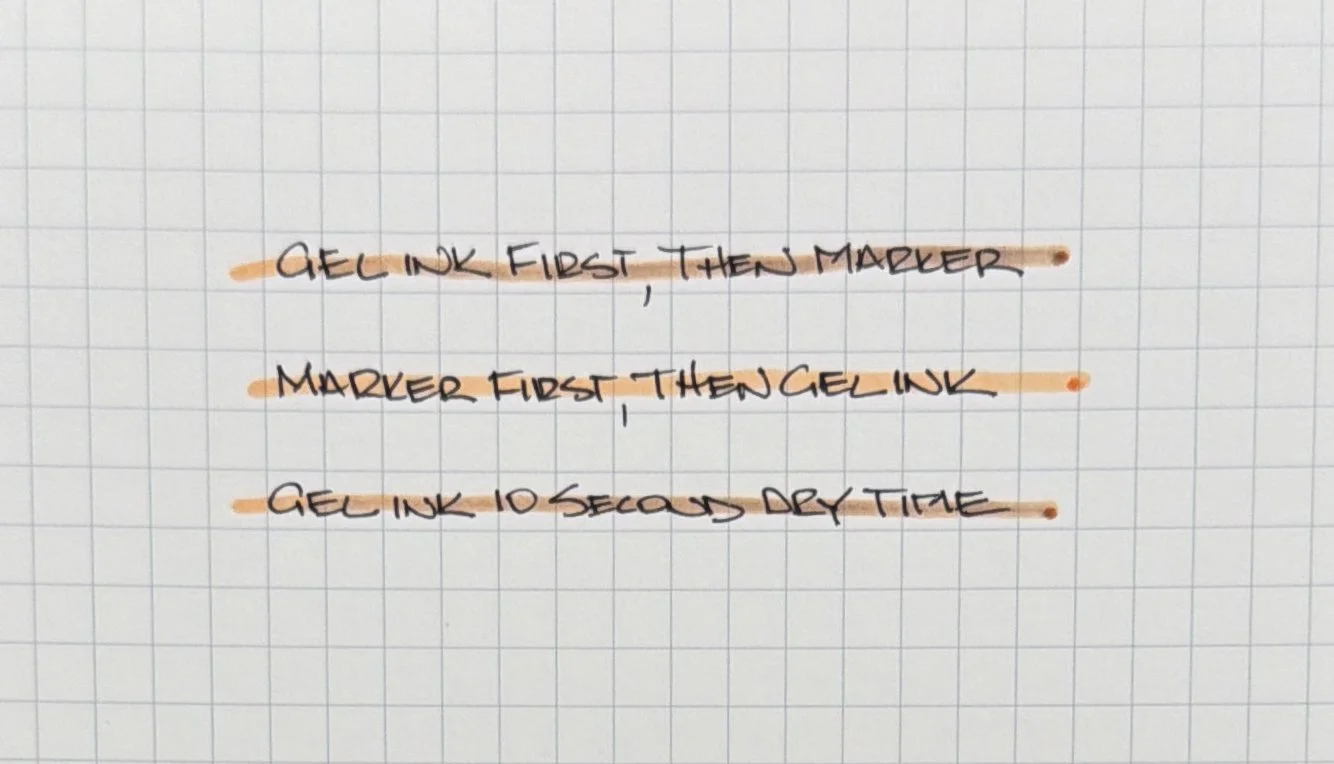 GEL INK FIRST, THEN MARKER
MARKER FIRST, THEN GEL INK
GEL INK 10 SECOND DRY TIME